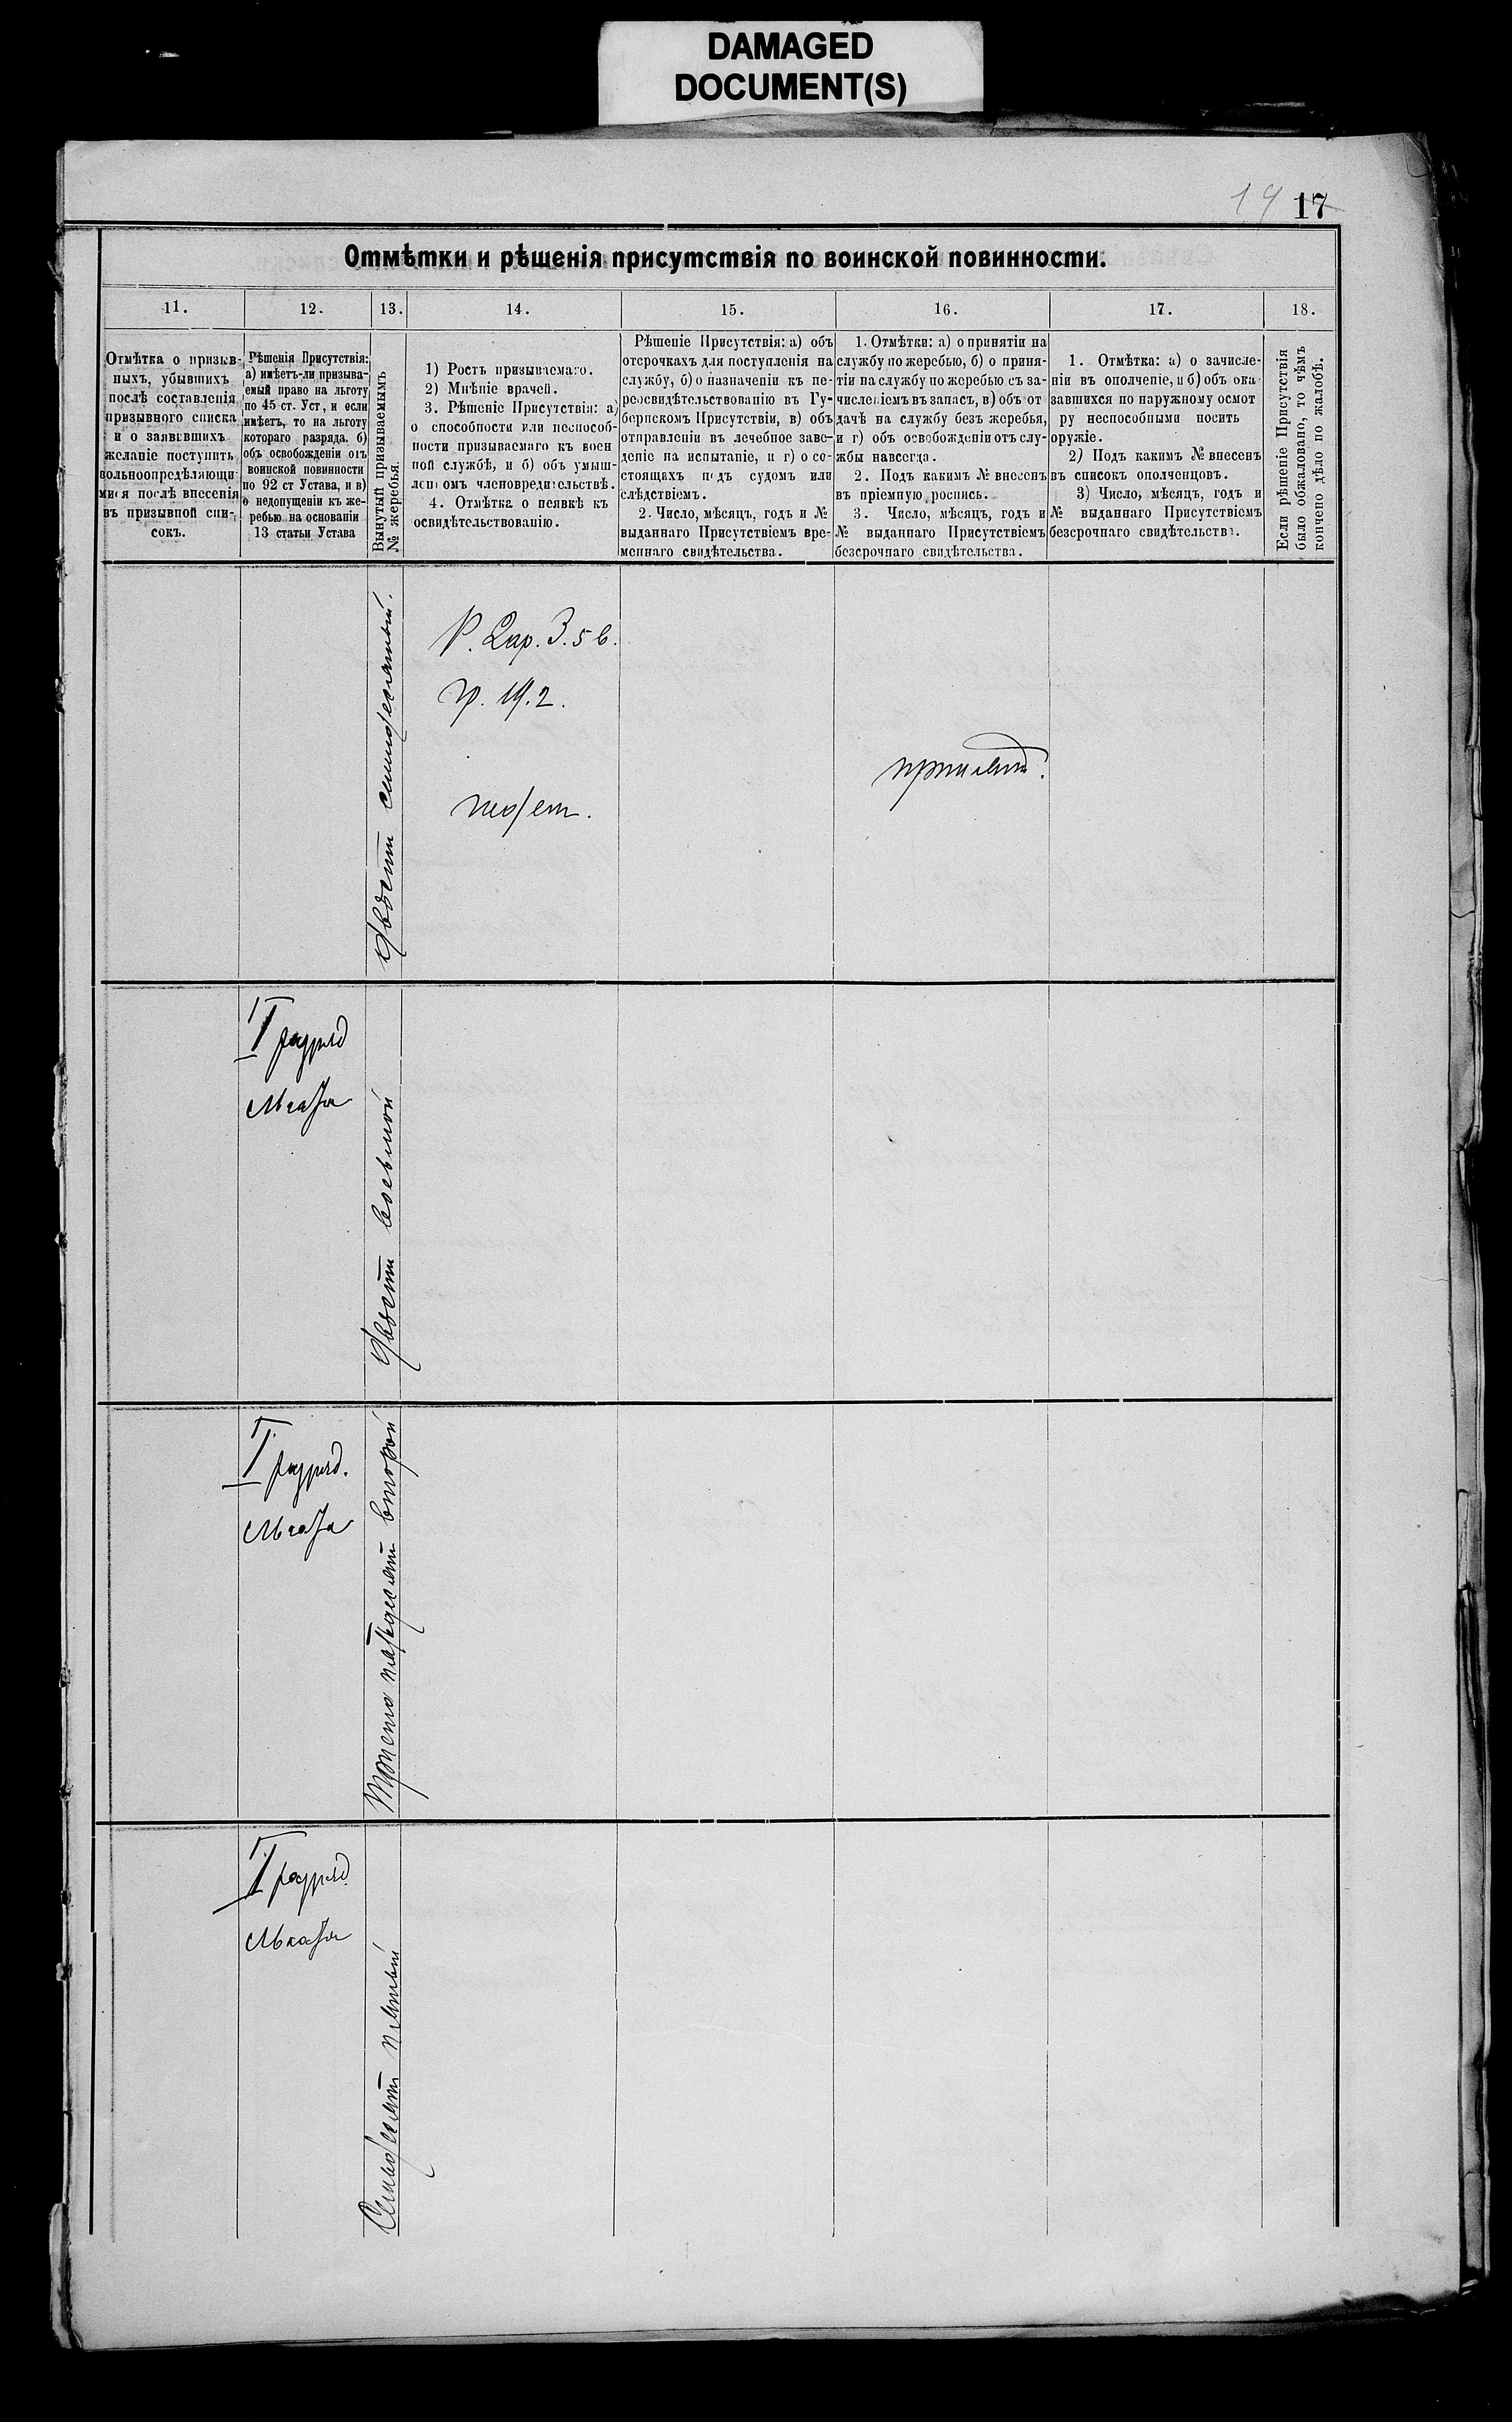 DAMAGED
DOCUMENT(S)
19 17
Отмѣтки и рѣшенія присутствія по воинской повинности.
11. 12. 13. 14. 15. 16. 17. 18.
Отмѣтка о призыв-
ныхъ, убывшихъ
послѣ составленія
призывного списка
и о заявившихъ
желаніе поступить
вольноопредѣляющи-
мися послѣ внесенія
въ призывной спи-
сокъ.
Рѣшенія Присутствія:
а) имѣетъ-ли призыва-
емый право на льготу
по 45 ст. Уст, и если
имѣетъ, то на льготу
котораго разряда, б)
объ освобожденіи отъ
воинской повинности
по 92 ст Устава, и в)
о недопущеніи къ же-
ребью на основаніи
13 статьи Устава
Вынутый призываемымъ
№ жеребья.
1) Ростъ призываемаго.
2) Мнѣніе врачей.
3. Рѣшеніе Присутствія: а)
о способности или неспособ-
ности призываемаго къ воен
ной службѣ, и б) объ умыш-
леномъ членовредительствѣ.
4. Отмѣтка о неявкѣ къ
освидѣтельствованію.
Рѣшеніе Присутствія: а) объ
отсрочкахъ для поступленія на
службу, б) о назначеніи къ пе-
реосвидѣтельствованію въ Гу-
бернскомъ Присутствіи, в) объ
отправленіи въ лечебное заве-
деніе на испытаніе, и г) о со-
стоящихъ подъ судомъ или
слѣдствіемъ.
2. Число, мѣсяцъ, годъ и №
выданнаго Присутствіемъ вре-
меннаго свидѣтельства.
1. Отмѣтки: а) о принятіи на
службу по жеребью, б) о приня-
тіи на службу по жеребью съ за-
численіемъ въ запасъ, в) объ от
дачѣ на службу безъ жеребья,
и г) объ освобожденіи отъ слу-
жбы навсегда.
2. Подъ какимъ № внесенъ
въ пріемную роспись.
3. Число, мѣсяцъ, годъ и
№ выданнаго Присутствіемъ
безсрочнаго свидѣтельства.
1. Отмѣтка: а) о зачисле-
ніи въ ополченіе, и б) объ ока
завшихся по наружному осмот
ру неспособными носить
оружіе.
2) Подъ какимъ № внесенъ
въ списокъ ополченцовъ.
3) Число, мѣсяцъ, годъ и
№ выданнаго Присутствіемъ
безсрочнаго свидѣтельства.
Если рѣшеніе Присутствія
было обжаловано, то чѣмъ
кончено дѣло по жалобѣ.
Двѣсти семидесятый.
Р. 2 ар. 3. 5 в.
гр. 19. 2.
годен.
принят.
I разряд
льгота
Двѣсти восьмой
I разряд.
льгота
Триста пятдесят второй
I разряд
льгота
Семьдесят пятый